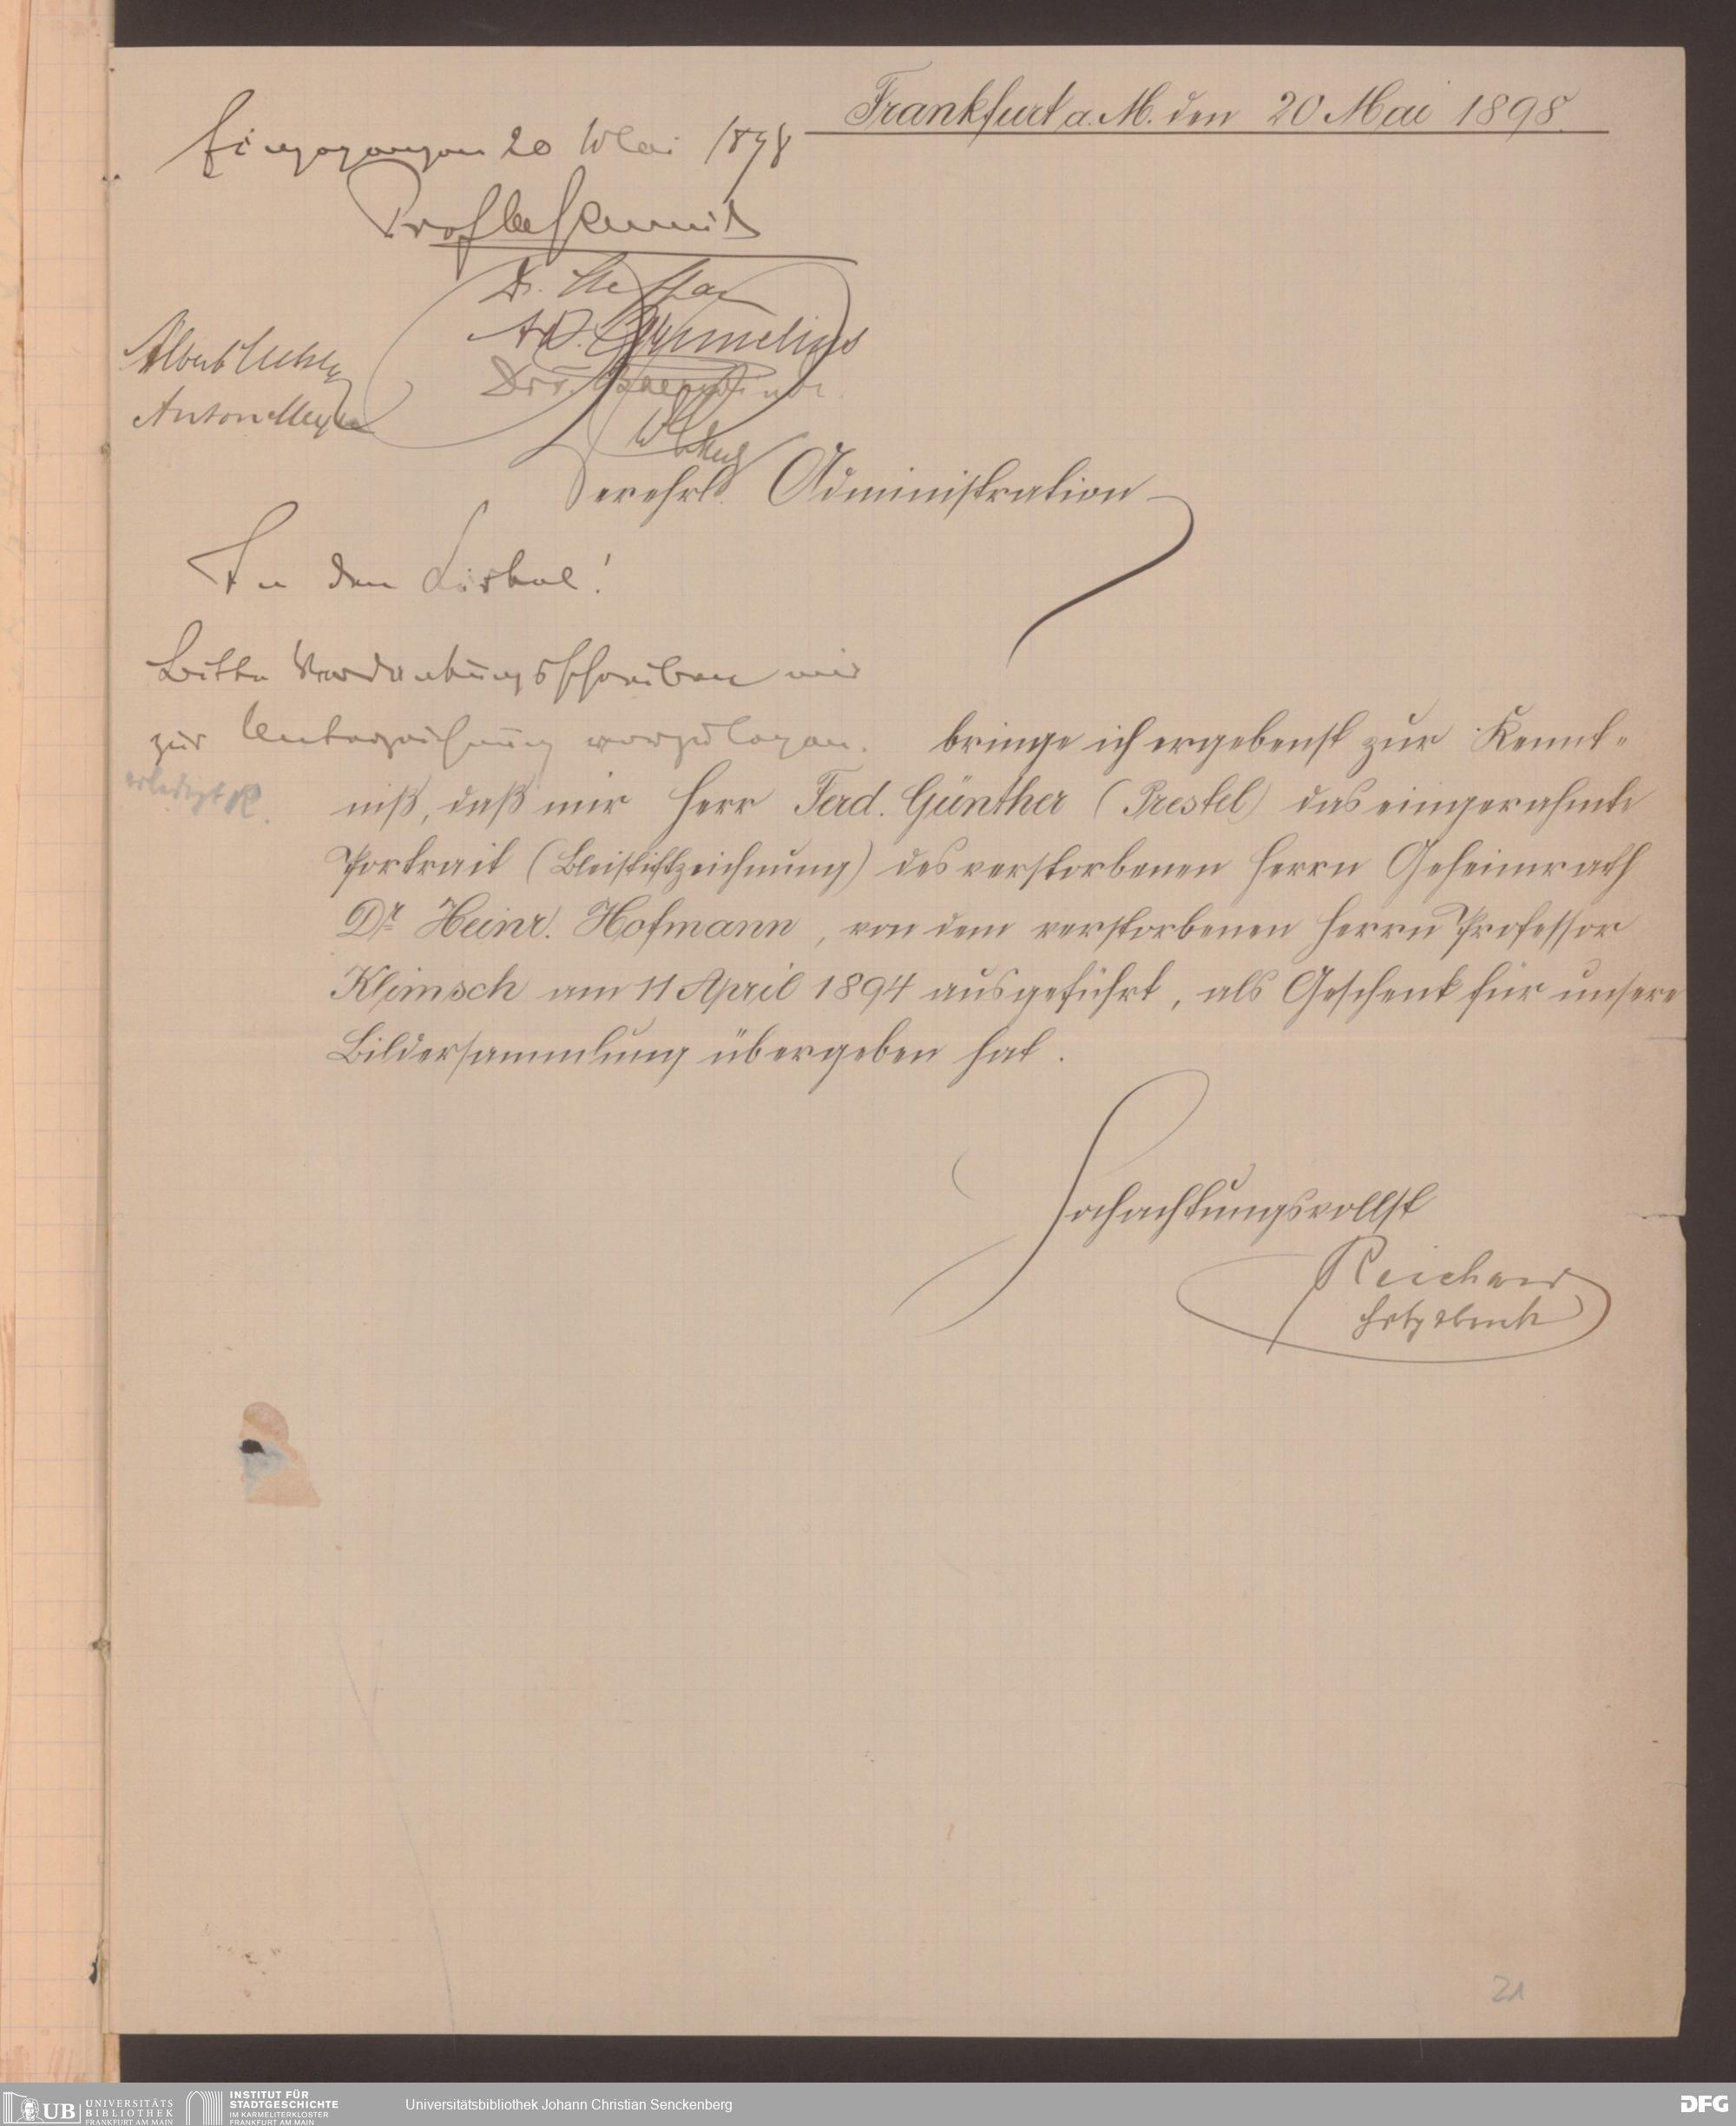 Frankfurt a. M. den 20 Mai 1898.
Eingegangen 20 Mai 1898
Prof
Dr.
Albert
Anton Meyer
Verehrl. Administration
An den
Bitte Verdankungsschreiben mir
zur Unterzeichnung vorzulegen.
erledigt
bringe ich ergebenst zur Kennt-
niß, daß mir Herr Ferd. Günther (Prestel) das eingerahmte
Portrait (Bleistiftzeichnung) des verstorbenen Herrn Geheimrath
Dr Heinr. Hofmann, von dem verstorbenen Herrn Professor
Klimsch am 11 April 1894 ausgeführt, als Geschenk für unsere
Bildersammlung übergeben hat.
Hochachtungsvollst
Reichard
21
UB UNIVERSITÄTS
BIBLIOTHEK
FRANKFURT AM MAIN
INSTITUT FÜR
STADTGESCHICHTE
IM KARMELITERKLOSTER
FRANKFURT AM MAIN
Universitätsbibliothek Johann Christian Senckenberg
DFG